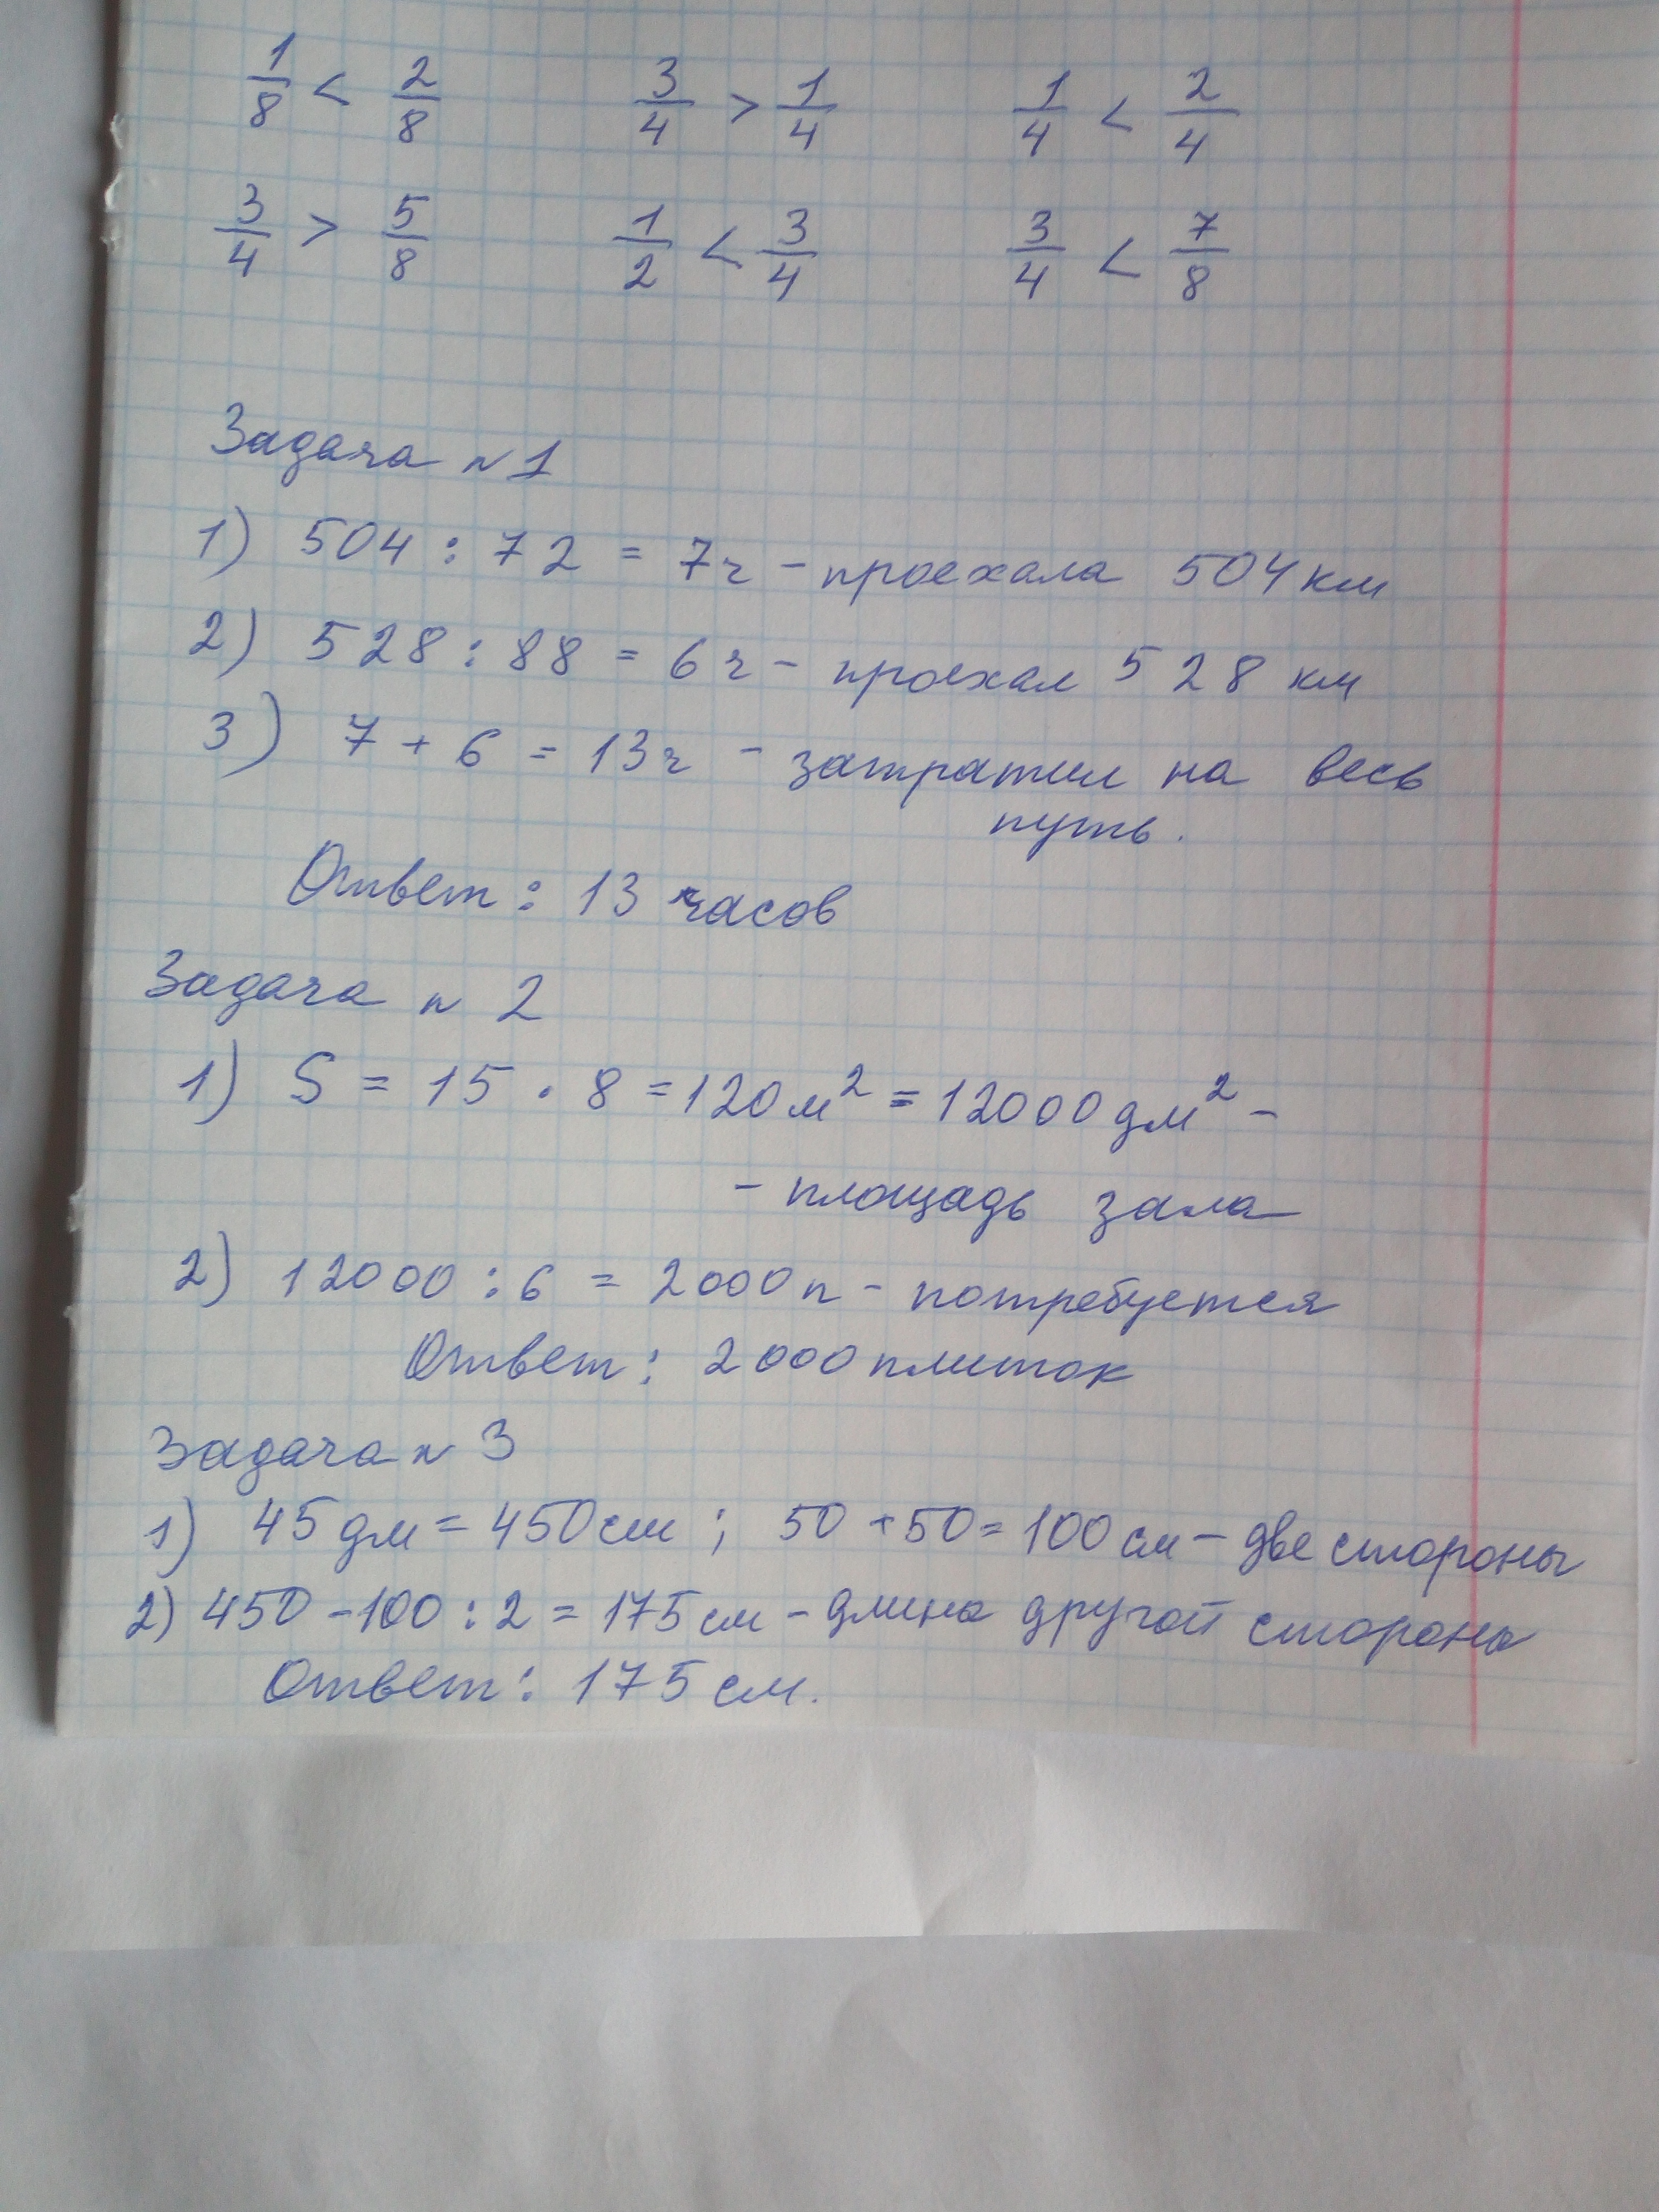 1/8 < 2/8   3/4 > 1/4   1/4 < 2/4
3/4 > 5/8   1/2 < 3/4   3/4 < 7/8
Задача n 1
1) 504 : 72 = 7ч - проехала 504 км
2) 528 : 88 = 6ч - проехал 528 км
3) 7 + 6 = 13ч - затратил на весь
путь.
Ответ: 13 часов
Задача n 2
1) S = 15 · 8 = 120 м² = 12000 дм² -
- площадь зала
2) 12000 : 6 = 2000 п - потребуется
Ответ: 2000 плиток
Задача n 3
1) 45 дм = 450 см ; 50 + 50 = 100 см - две стороны
2) 450 - 100 : 2 = 175 см - длина другой стороны
Ответ: 175 см.